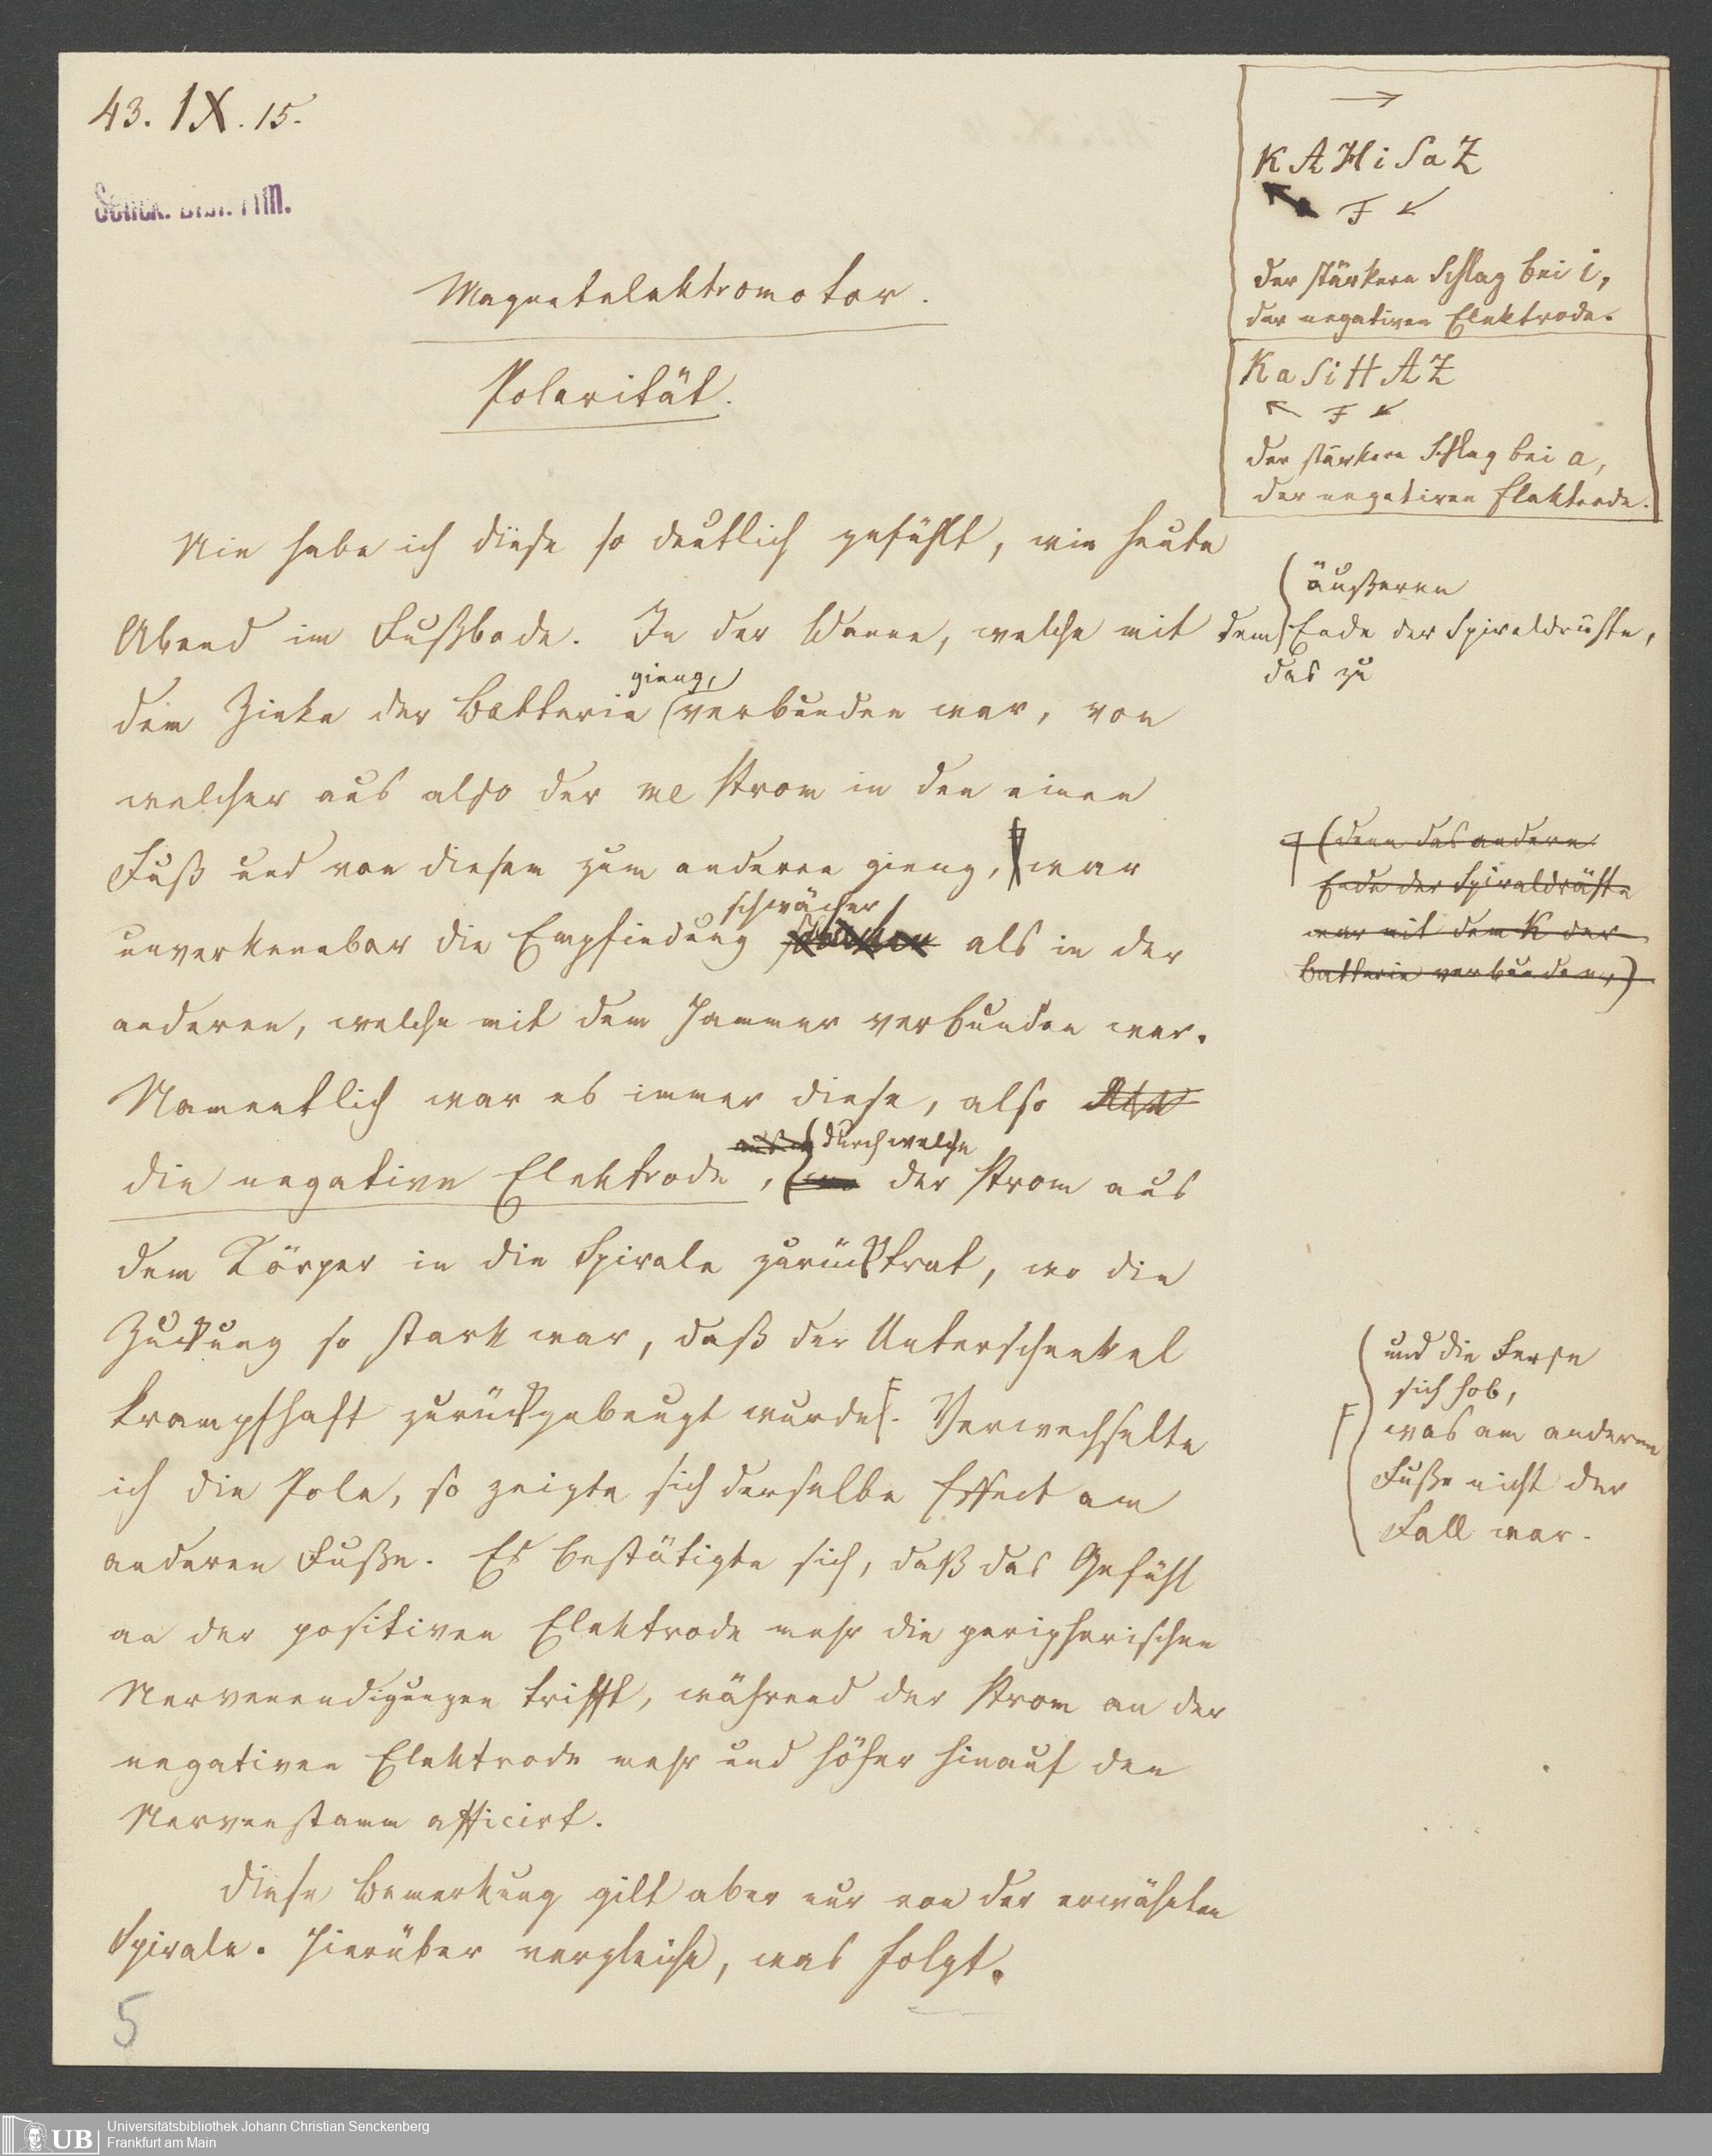 43. IX. 15.
Senck. Bibl. Ffm.
→
K A H i S a Z
F
der stärkere Schlag bei i,
der negativen Elektrode.
K a S i H A Z
F
der stärkere Schlag bei a,
der negativen Elektrode.
Magnetelektromotor.
Polarität.
Nie habe ich diese so deutlich gefühlt, wie heute
Abend im Fußbade. In der Wanne, welche mit dem
äußeren
Ende der Spiraldrähte,
das zu
dem Zinke der Batterie gieng, (verbunden war, von
welcher aus also der me Strom in den einen
Fuß und von diesem zum anderen gieng, war
(denn das andere
Ende der Spiraldrähte
war mit dem K der
Batterie verbunden,)
unverkennbar die Empfindung schwächer als in der
anderen, welche mit dem Hammer verbunden war.
Namentlich war es immer diese, also
die negative Elektrode, durch welche der Strom aus
dem Körper in die Spirale zurücktrat, wo die
Zuckung so stark war, daß der Unterschenkel
krampfhaft zurückgebeugt wurde. Verwechselte
und die Ferse
sich hob,
was am anderen
Fuße nicht der
Fall war.
ich die Pole, so zeigte sich derselbe Effect am
anderen Fuße. Es bestätigte sich, daß das Gefühl
an der positiven Elektrode mehr die peripherischen
Nervenendigungen trifft, während der Strom an der
negativen Elektrode mehr und höher hinauf den
Nervenstamm afficirt.
Diese Bemerkung gilt aber nur von der erwähnten
Spirale. Hierüber vergleiche, was folgt.
5
UB
Universitätsbibliothek Johann Christian Senckenberg
Frankfurt am Main